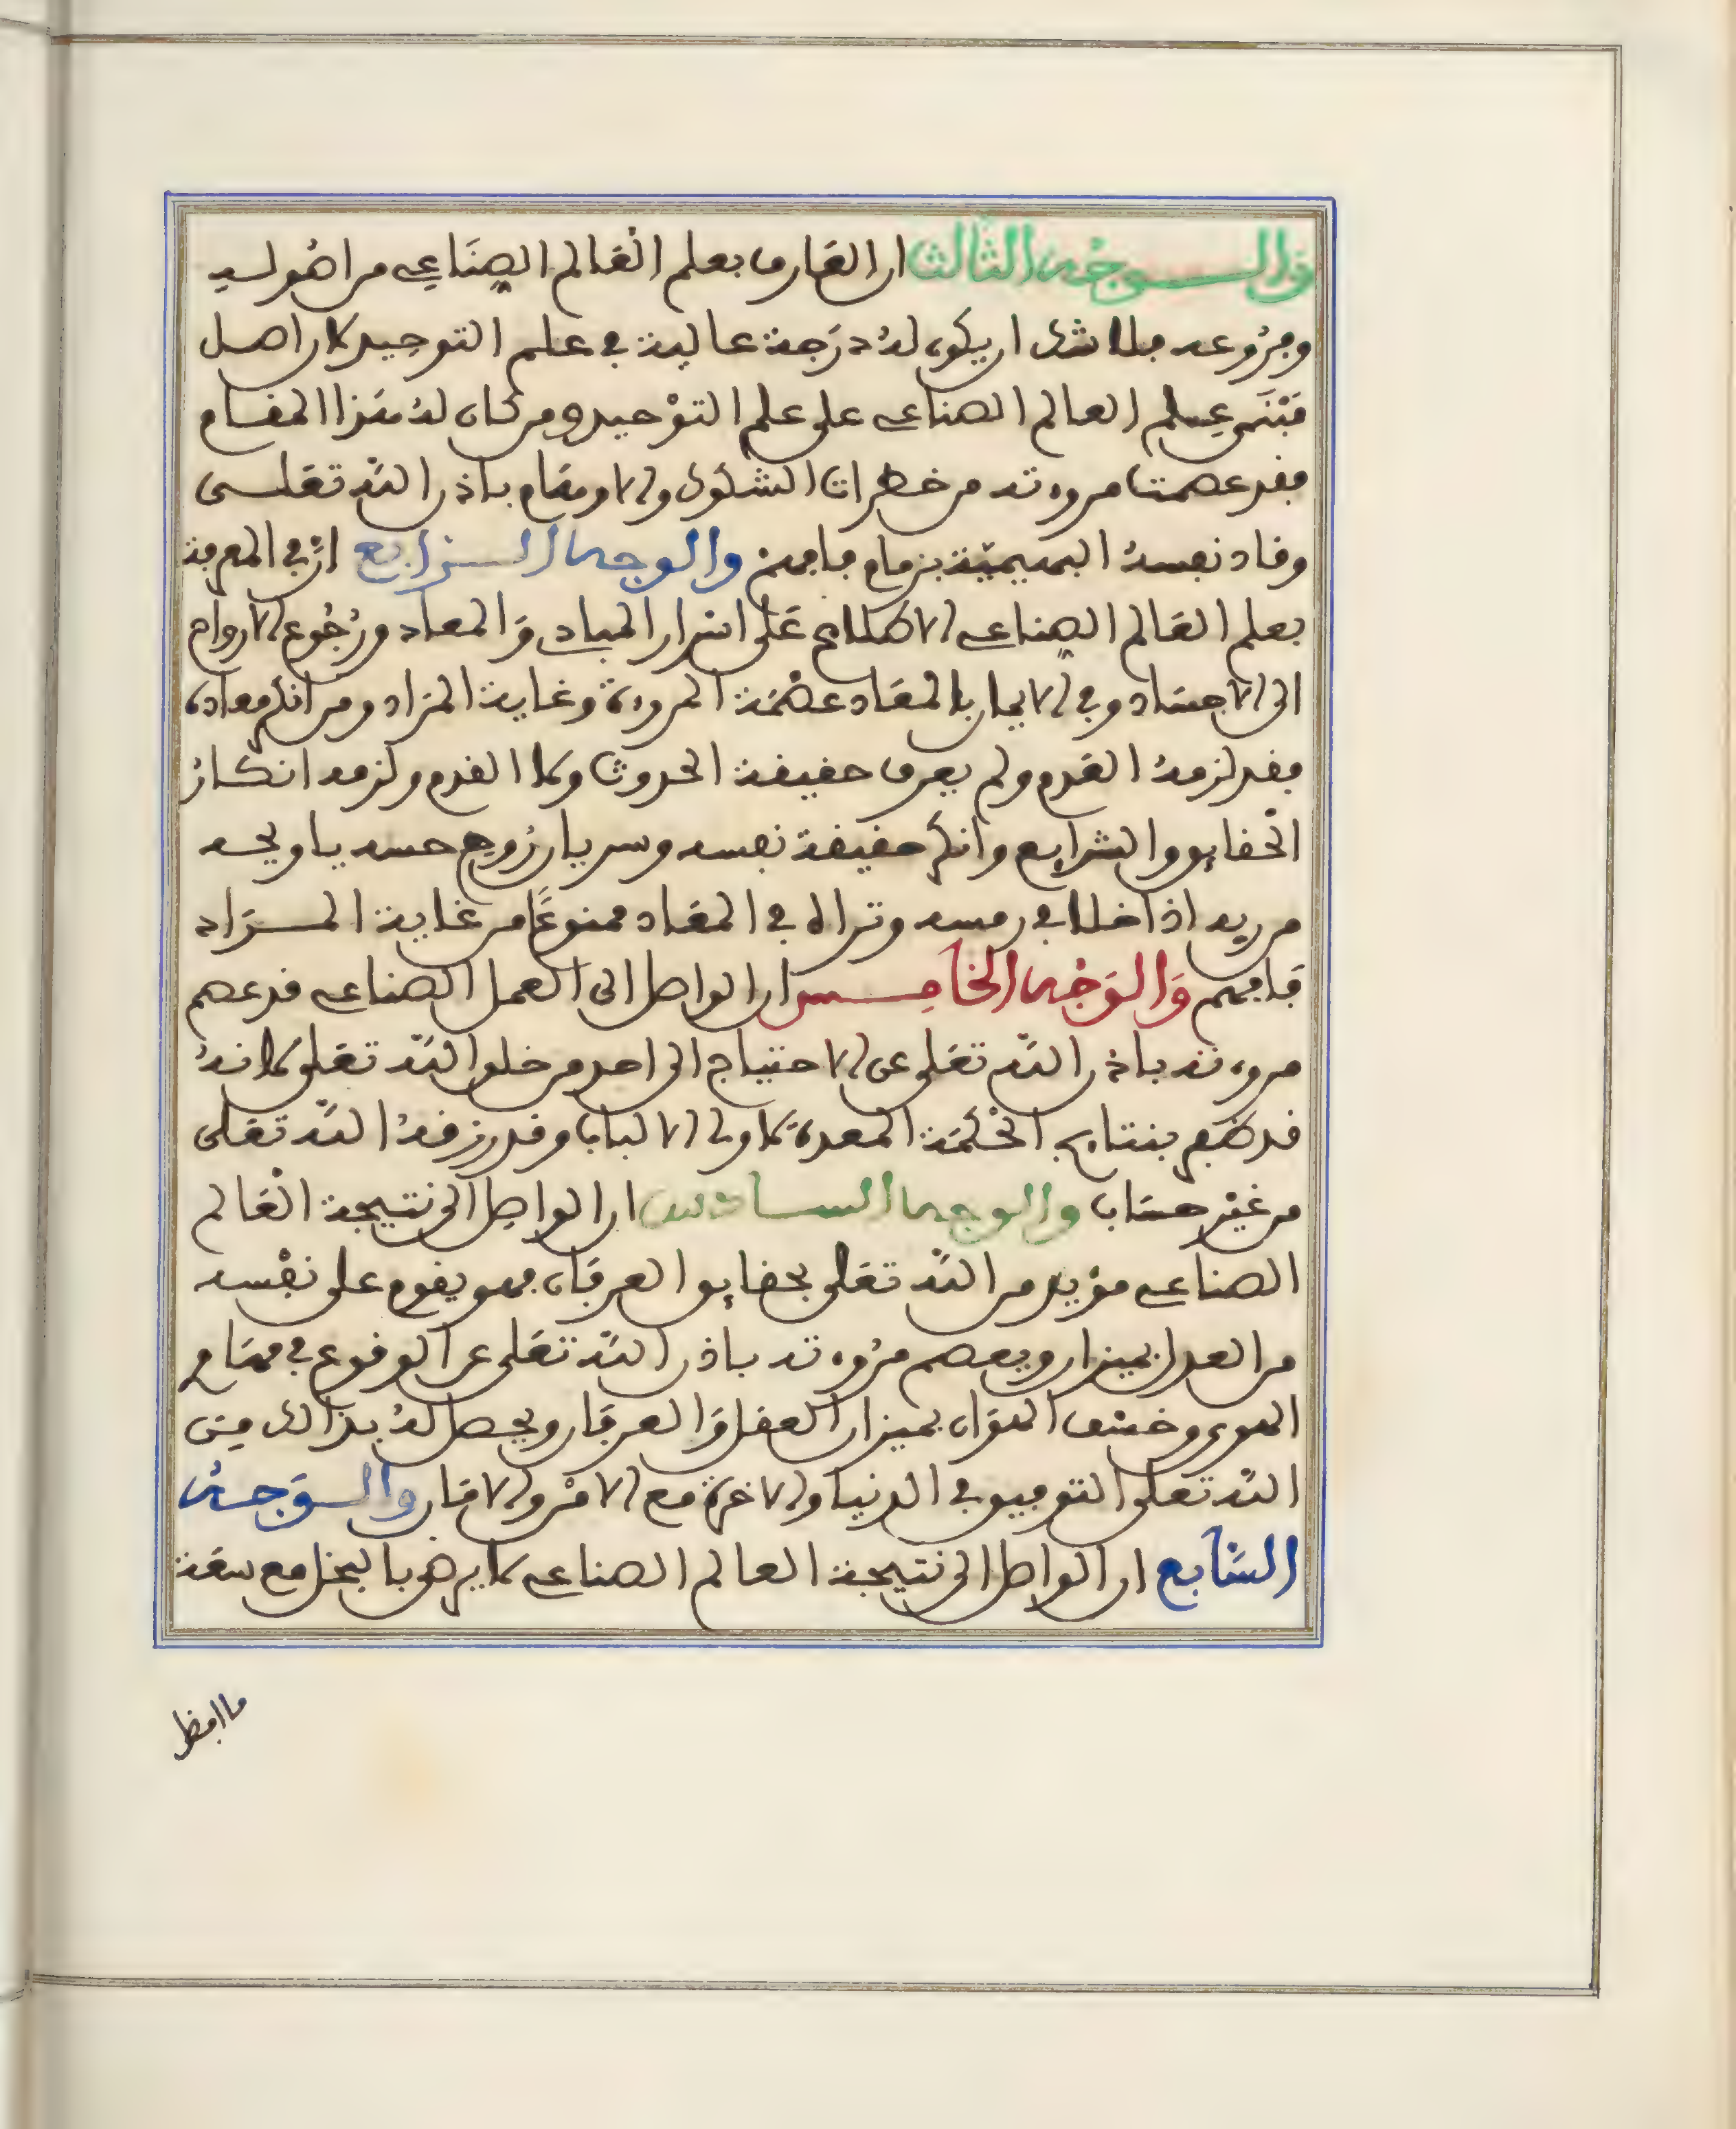 والوجه الثالث ان العارف بعلم العالم الصناعي من اصوله
وفروعه فلا شك ان يكون له درجة عالية في علم التوحيد لان اصل
مبنى علم العالم الصناعي على علم التوحيد ومن كان له هذا المقام
فقد عصمت مروءته من خطرات الشكوك والاوهام باذن الله تعلى
وقاد نفسه البهيمية بزمام فافهم والوجه الرابع ان في المعرفة
بعلم العالم الصناعي الاطلاع على اسرار المبادي والمعاد ورجوع الارواح
الى الاجساد وفي الايمان بالمعاد عصمة المروءة وغاية المراد ومن انكر معاده
فقد لزمه القدم ولم يعرف حقيقة الحدوث ولا القدم ولزمه انكار
الحقايق والشرايع وانكر حقيقة نفسه وسريان روح حسه يا ويحه
من ريه اذا خلا في رمسه وتراه في المعاد ممنوعا من غاية المراد
فافهم والوجه الخامس ان الواصل الى العمل الصناعي قد عصم
مروءته باذن الله تعلى عن الاحتياج الى احد من خلق الله تعلى لانه
قد ظفر بنتايج الحكمة المعدة لاولي الالباب وقد رزقه الله تعلى
من غير حساب والوجه السادس ان الواصل الى نتيجة العالم
الصناعي مؤيد من الله تعلى بحقايق العرفان فهو يقوم على نفسه
من العدل بميزان ويعصم مروءته باذن الله تعلى عن الوقوع في مهام
الهوى وخسف الهوان بميزان العقل والعرفان ويحصل له بذالك من
الله تعلى التوفيق في الدنيا والاخرة مع الامن والامان والوجه
السابع ان الواصل الى نتيجة العالم الصناعي لا يرهق بالبخل مع سعة
ما افضل